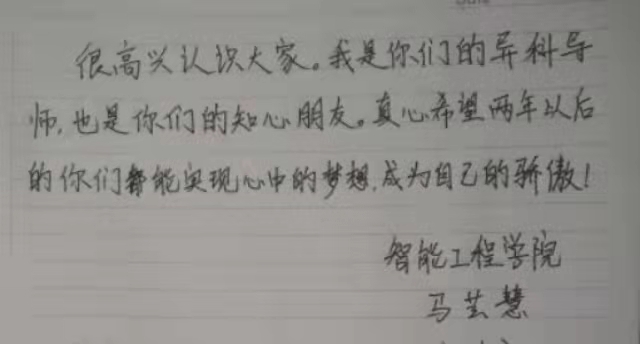 很高兴认识大家。我是你们的异科导
师,也是你们的知心朋友。真心希望两年以后
的你们都能实现心中的梦想,成为自己的骄傲!
智能工程学院
马芸慧